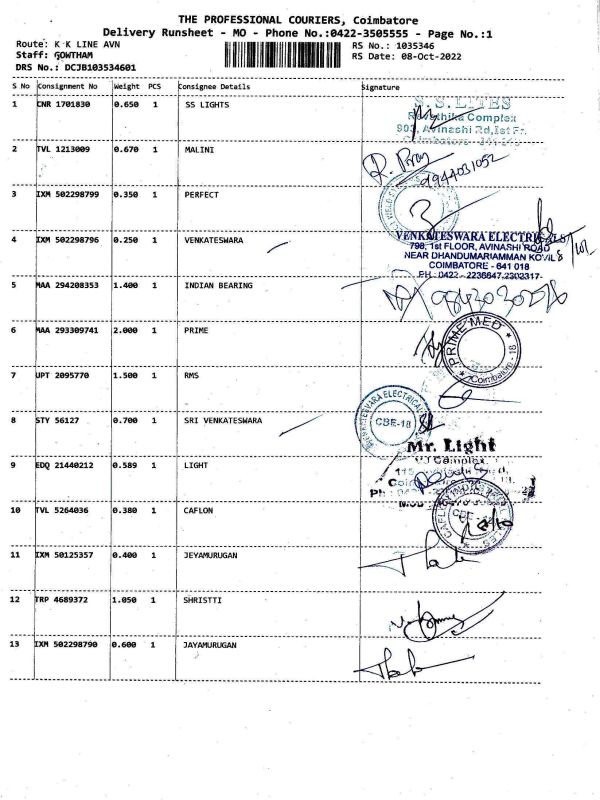 THE PROFESSIONAL COURIERS, Coimbatore
Delivery Runsheet - MO - Phone No.:0422-3505555 - Page No.:1
Route: K K LINE AVN RS No.: 1035346
Staff: GOWTHAM RS Date: 08-Oct-2022
DRS No.: DCJB103534601
S No Consignment No Weight PCS Consignee Details Signature
1 CNR 1701830 0.650 1 SS LIGHTS
S.S.LITES
Complex
Avinashi Rd,
2 TVL 1213009 0.670 1 MALINI
9944031052
3 IXM 502298799 0.350 1 PERFECT
4 IXM 502298796 0.250 1 VENKATESWARA
VENKATESWARA ELECTRICALS
798, 1st FLOOR, AVINASHI ROAD
NEAR DHANDUMARIAMMAN KOVIL
COIMBATORE - 641 018
PH : 0422 - 2236647, 2302317
5 MAA 294208353 1.400 1 INDIAN BEARING
6 MAA 293309741 2.000 1 PRIME
PRIME MED
Coimbatore - 18
7 UPT 2095770 1.500 1 RMS
8 STY 56127 0.700 1 SRI VENKATESWARA
VENKATESWARA ELECTRICAL
CBE-18
Mr. Light
9 EDQ 21440212 0.589 1 LIGHT
10 TVL 5264036 0.380 1 CAFLON
11 IXM 50125357 0.400 1 JEYAMURUGAN
12 TRP 4689372 1.050 1 SHRISTTI
13 IXM 502298790 0.600 1 JAYAMURUGAN